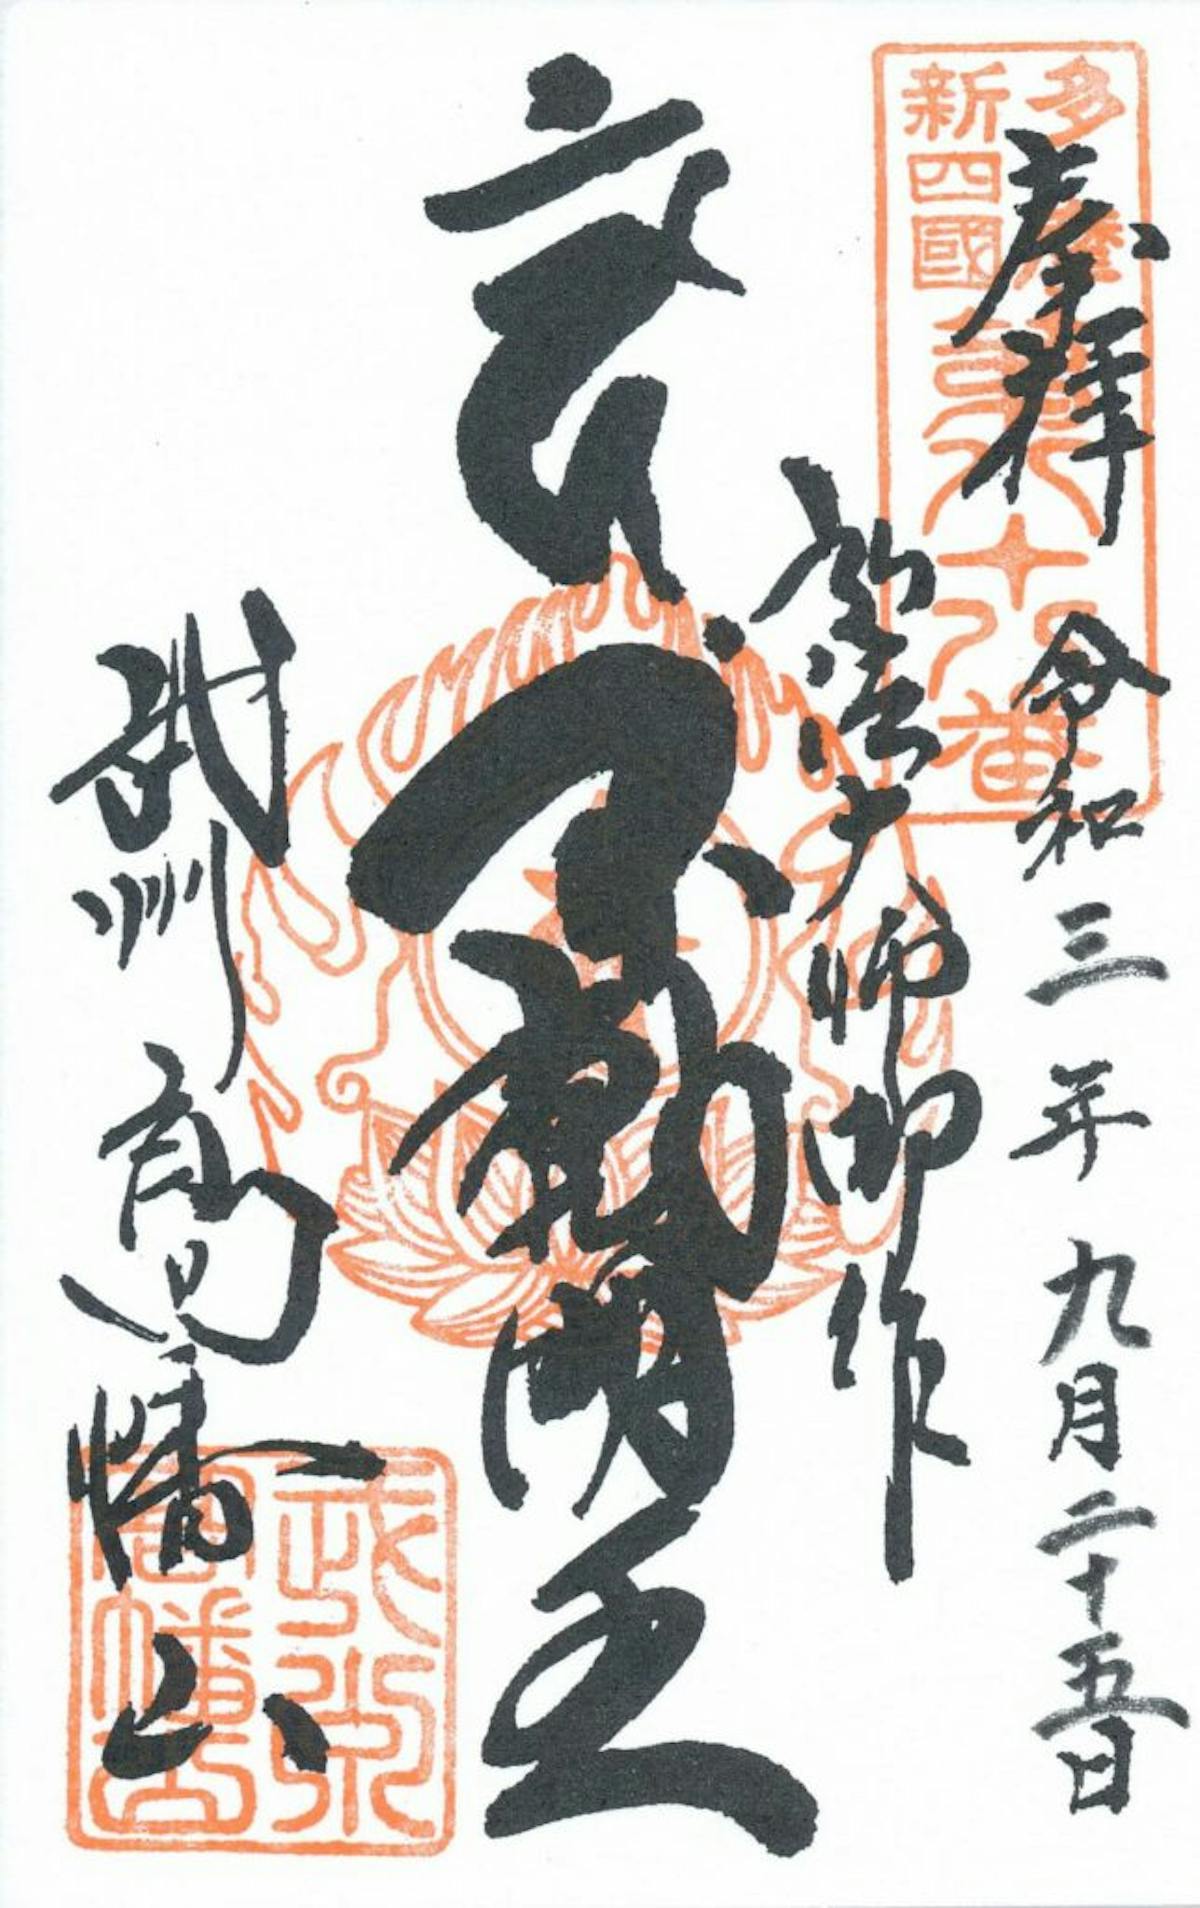 多摩
新四國
第八十八番
奉拝 令和三年九月二十五日
大師御作
不動明王
武州 高幡山
武州
高幡山